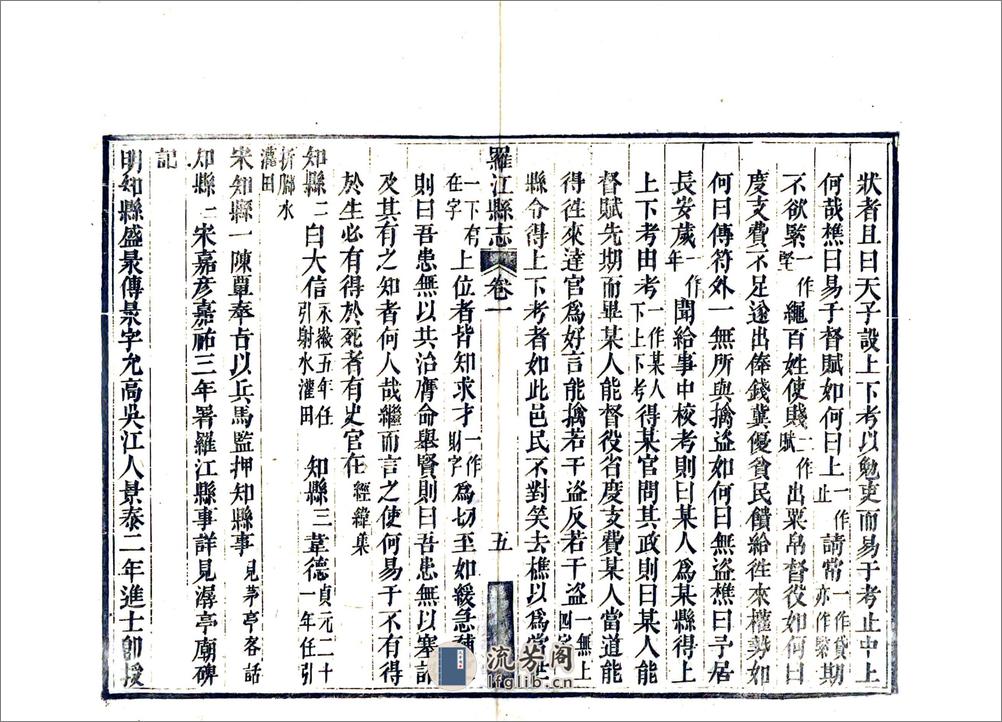 狀者且曰天子設上下考以勉吏而易于考止中上
何哉樵曰易于督賦如何曰上一作止請常一作貸期亦作繁
不欲緊一作堅繩百姓使賤一作賦出粟帛督役如何曰
度支費不足遂出俸錢冀優貧民饋給往來權勢如
何曰傳符外一無所與擒盜如何曰無盜樵曰予居
長安歲一作年聞給事中校考則曰某人爲某縣得上
上下考由考一作某人上下考得某官問其政則曰某人能
督賦先期而畢某人能督役省度支費某人當道能
得往來達官爲好言能擒若干盜反若干盜一無上四字
縣令得上下考者如此邑民不對笑去樵以爲當世
羅江縣志 卷一 五
一下有在字上位者皆知求才一作財字爲切至如緩急
則曰吾患無以共治膺命舉賢則曰吾患無以塞詔
及其有之知者何人哉繼而言之使何易于不有得
於生必有得於死者有史官在經緯集
知縣二白大信永徽五年任引射水灌田 知縣三韋德貞元二十一年任引
折腳水灌田
宋知縣一陳覃奉占以兵馬監押知縣事見茅亭客話
知縣二宋嘉彥嘉祐三年署羅江縣事詳見潺亭廟碑
記
明知縣盛景傳景字允高吳江人景泰二年進士卽授
流芳阁
lfglib.cn